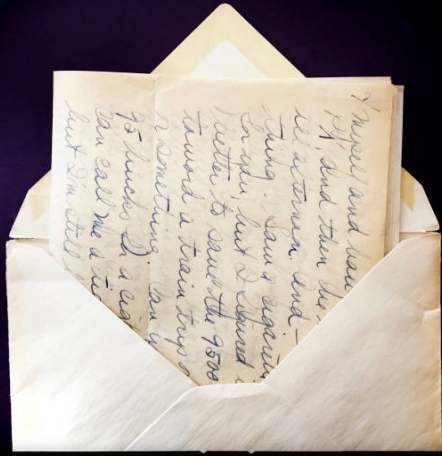 myself and had
PX, and then the
afternoon and—
thing. Saw a cigarett
for you, but I figured
better to save the 9500
toward a train trip o
something. Can y
95 bucks a cig
can call me a
but I'm still